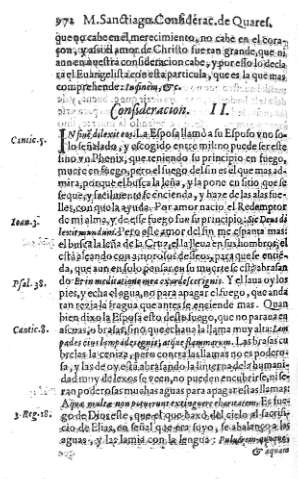 972 M. Sanctiago. Considerac. de Quares.
que no cabe en el merecimiento, no cabe en el cora-
çon, y assi el amor de Christo fue tan grande, que ni
aun en nuestra consideracion cabe, y por esso lo decla
ra el Euangelista con esta particula, que es la que mas
comprehende: In finem, &c.
Consideracion. II.
Cantic. 5.
IN finē dilexit eos. La Esposa llamò a su Esposo vno so-
lo señalado, y escogido entre mil: no puede ser este
sino vn Phenix, que teniendo su principio en fuego,
muere en fuego, pero el fuego del fin es el que mas ad-
mira, porque el busca la leña, y la pone en sitio que se
seque, y facilmente se encienda, y haze de las alas fue-
lles, con que la ayuda. Por amor nacio el Redemptor
Ioan. 3.
de mi alma, y de esse fuego fue su principio: Sic Deus di
lexit mundum. Pero este amor del fin me espanta mas:
el busca la leña de la Cruz, el la lleua en sus hombros, el
està desseando con amorosos desseos, para que se encië-
da, que aun en solo pensar en su muerte se està abrasan
Psal. 38.
do Et in meditatione mea exardescet ignis. Y el laua oy los
pies, y echa el agua, no para apagar el fuego, que anda
an
la fragua que antes se enciende mas. Quan
bien dixo la Esposa esto deste fuego, que no para en
Cantic. 8.
ascuas, o brasas, sino que echaua la llama muy alta: Lam
pades eius lampades ignis, atque flammarum. Las brasas cu
brelas la ceniza, pero contra las llamas no es podero-
sa, y las de oy està abrasando la linterna de la humani-
dad muy de lexos se veen, no pueden encubrirse, ni se-
ran poderosas muchas aguas para apagar estas llamas:
Aquæ multæ non potuerunt extinguere charitatem. Es fue
3. Reg. 18.
go de Dios este, que el que baxò del cielo al sacrifi-
cio de Elias, en señal que era suyo, se abalançò a las
aguas, y las lamia con la lengua:
& aquam